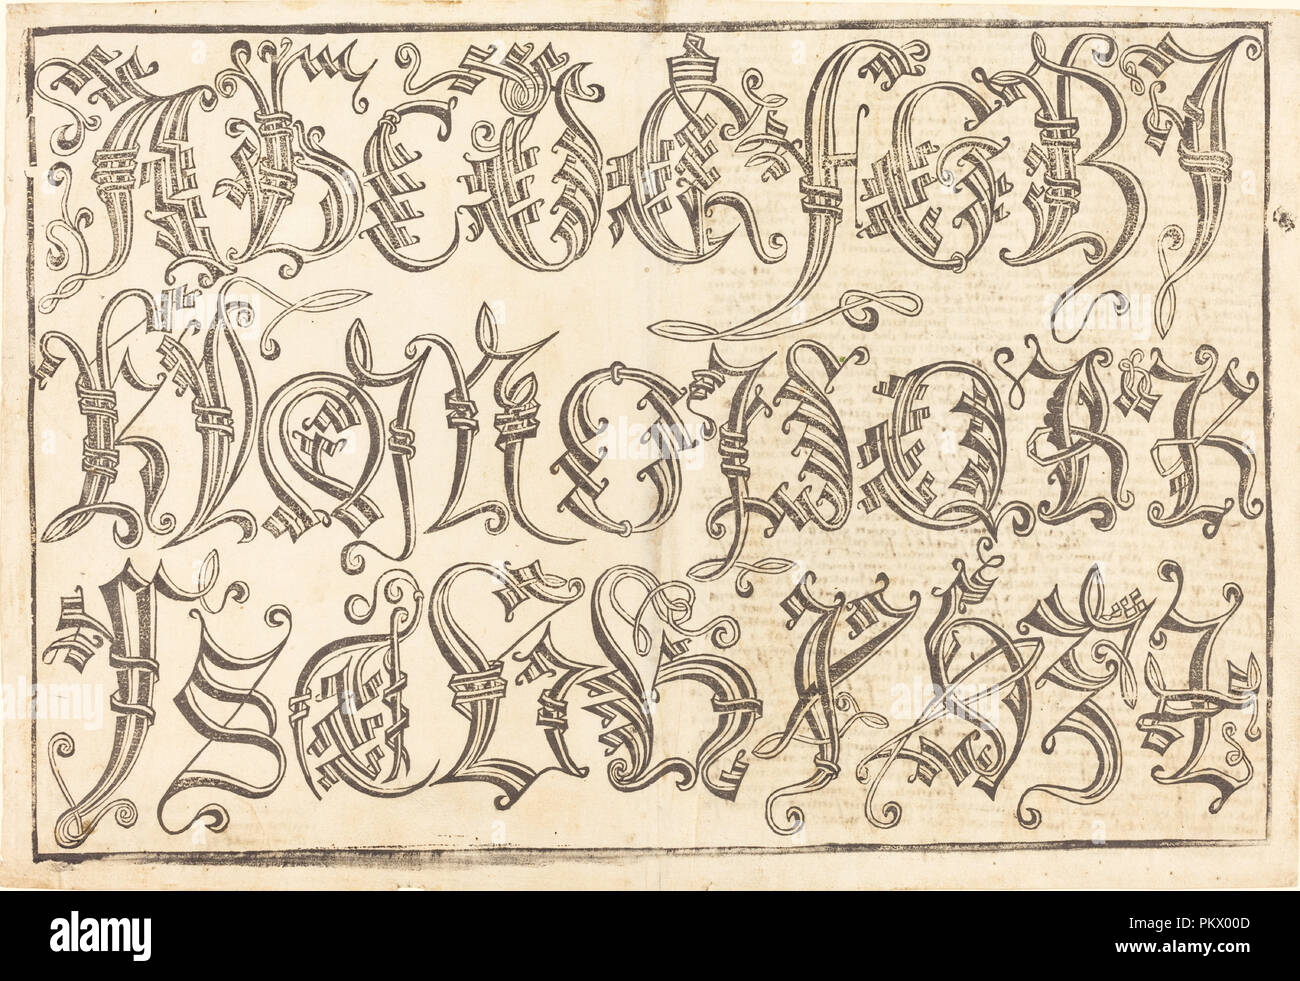 A B C D E F G H I
K L M N O P Q R R
S S T V X Y Z
alamy
Image ID: PKX00D
www.alamy.com